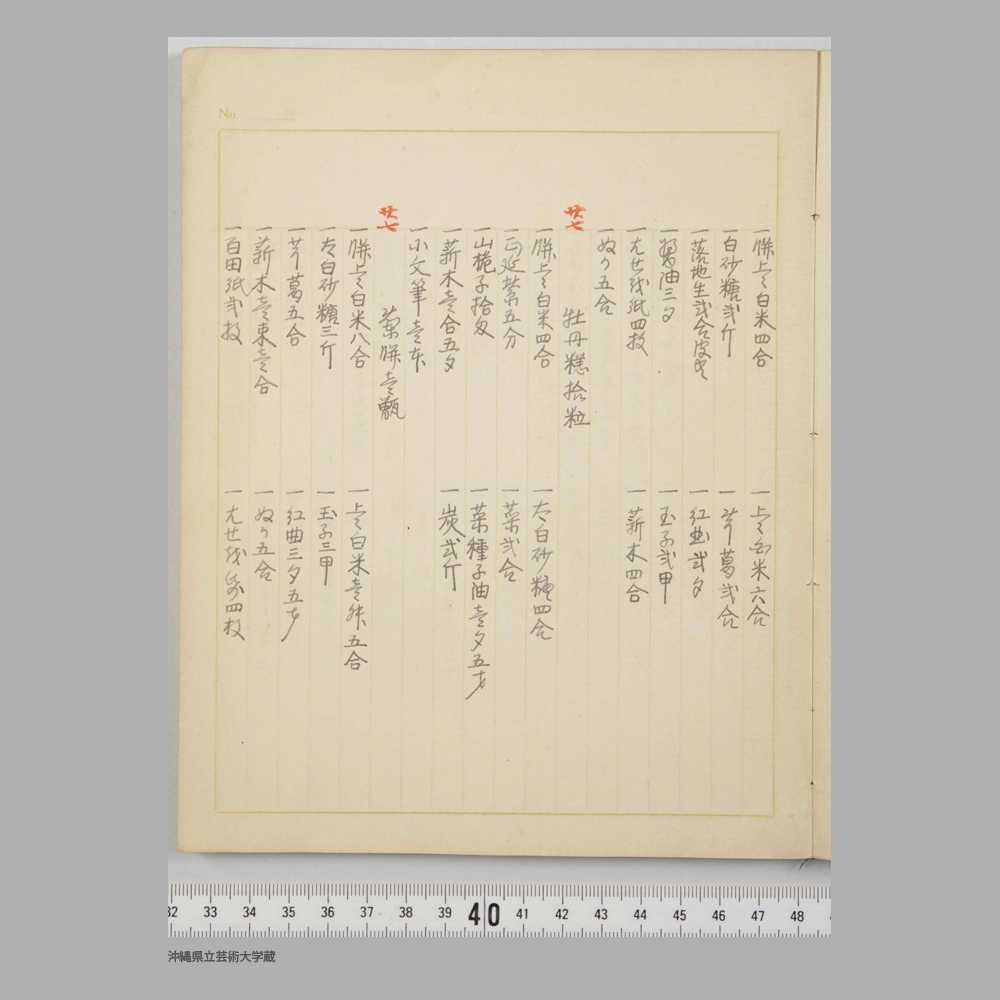 No.
一 餅上々白米四合
一 上々白米六合
一 白砂糖弐斤
一 芋葛弐合
一 落地生弐合皮共
一 紅曲弐夕
一 醤油三夕
一 玉子弐甲
一 九せ我紙四枚
一 薪木四合
一 ぬか五合
廿七
牡丹糕拾粒
一 餅上々白米四合
一 太白砂糖四合
一 正延紫五分
一 菜弐合
一 山梔子拾匁
一 菜種子油壱夕五才
一 薪木壱合五夕
一 炭弐斤
一 小文筆壱本
廿七
菊餅壱甑
一 餅上々白米八合
一 上々白米壱升五合
一 太白砂糖三斤
一 玉子三甲
一 芋葛五合
一 紅曲三夕五才
一 薪木壱束壱合
一 ぬか五合
一 百田紙弐枚
一 九せ我紙四枚
32 33 34 35 36 37 38 39 40 41 42 43 44 45 46 47 48
沖縄県立芸術大学蔵